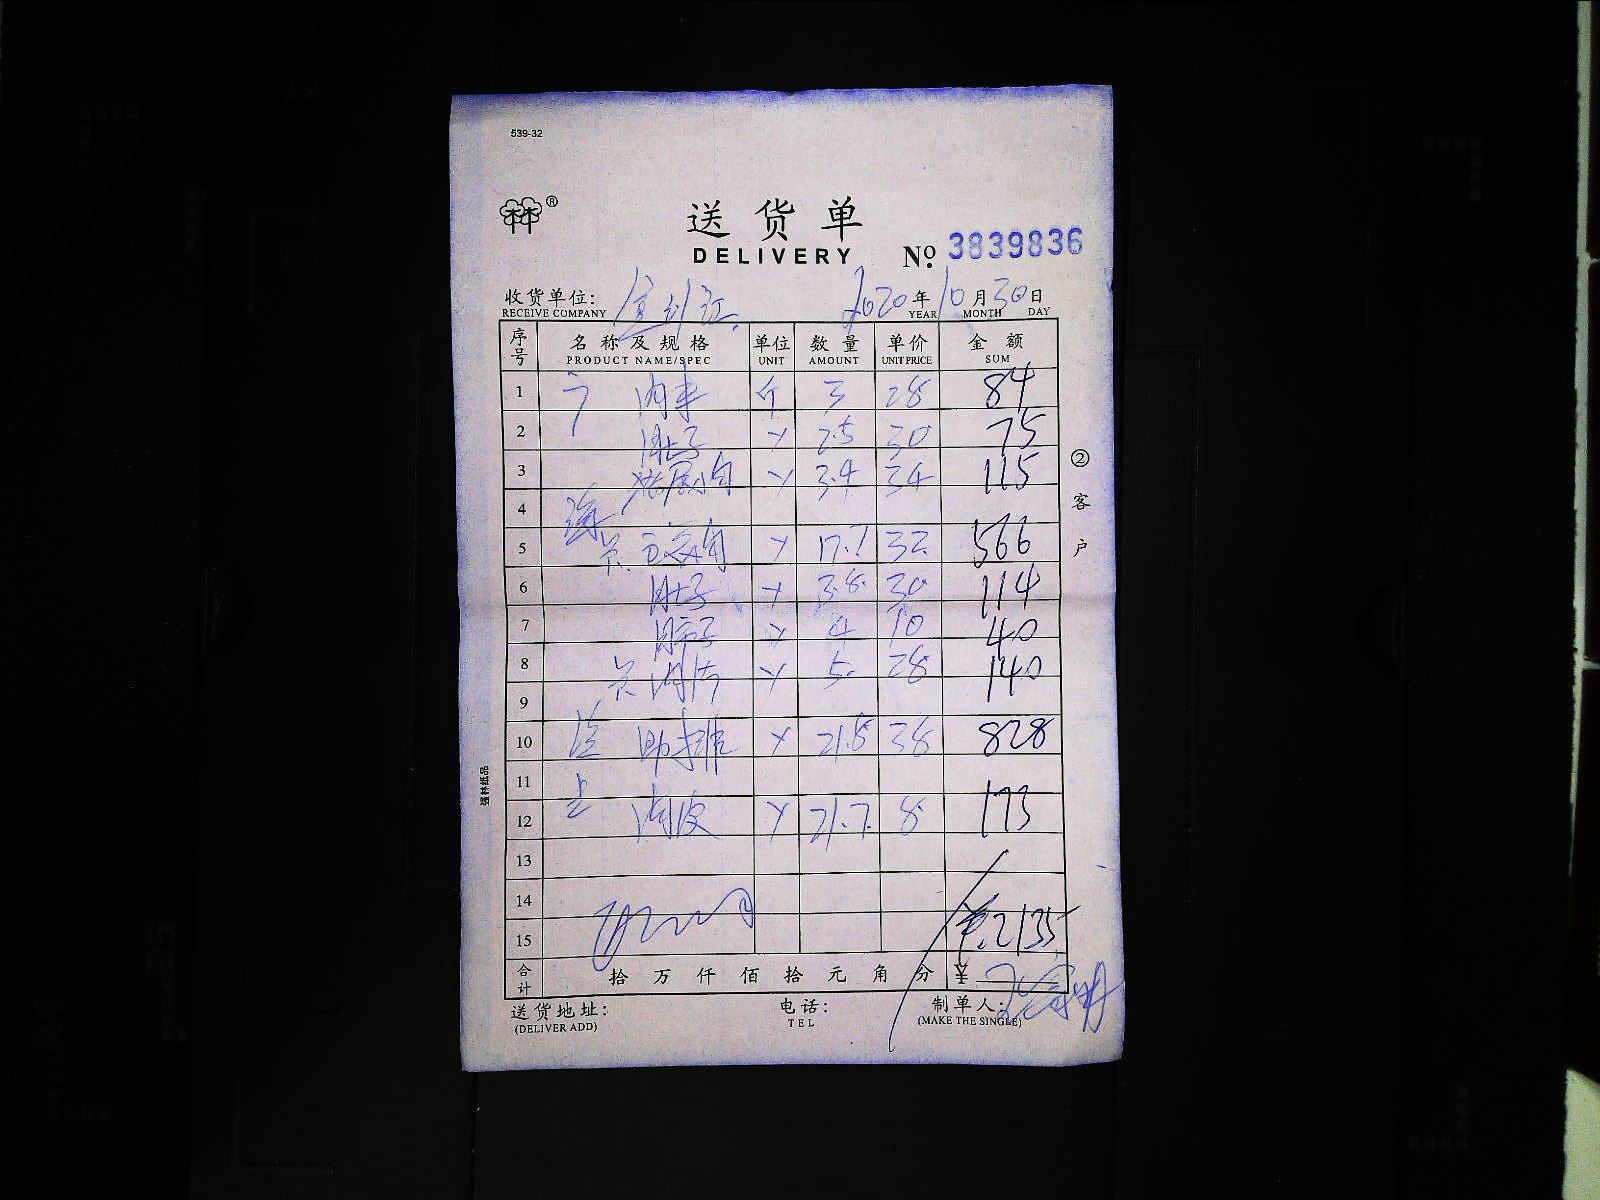 539-32
送货单
DELIVERY No. 3839836
收货单位: 2020年10月30日
RECEIVE COMPANY YEAR MONTH DAY
序号 名称及规格 单位 数量 单价 金额
PRODUCT NAME/SPEC UNIT AMOUNT UNIT PRICE SUM
1 肉丰 个 3 28 84
2 肚子 2.5 30 75
3 3.4 34 115
4
5 17.7 32 566
6 肚子 3.8 30 114
7 4 10 40
8 肉片 5 28 140
9
10 肋排 21.8 38 828
11
12 肉皮 21.7 8 173
13
14
15 ¥2135
合计 拾万仟佰拾元角分 ¥
送货地址: 电话: 制单人:
(DELIVER ADD) TEL (MAKE THE SINGLE)
②客户
强林纸品